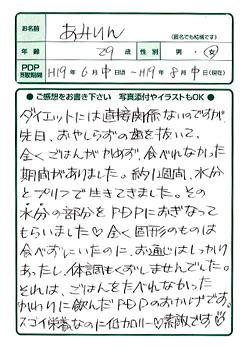 お名前 あみりん
(匿名でも結構です)
年齢 29歳 性別 男・女
PDP摂取期間 H19年6月中頃~H19年8月中(現在)
● ご感想をお書き下さい 写真添付やイラストもOK ●
ダイエットには直接関係ないのですが、
先日、おやしらずの歯を抜いて、
全くごはんがかめず、食べれなかった
期間がありました。約1週間、水分
とプリンで生きてきました。その
水分の部分をPDPにおぎなって
もらいました♡全く固形のものは
食べずにいたのに、お通じはしっかり
あったし、体調もくずしませんでした。
それは、ごはんを食べれなかった
かわりに飲んだPDPのおかげです。
スゴイ栄養なのに低カロリー♡素敵です♡